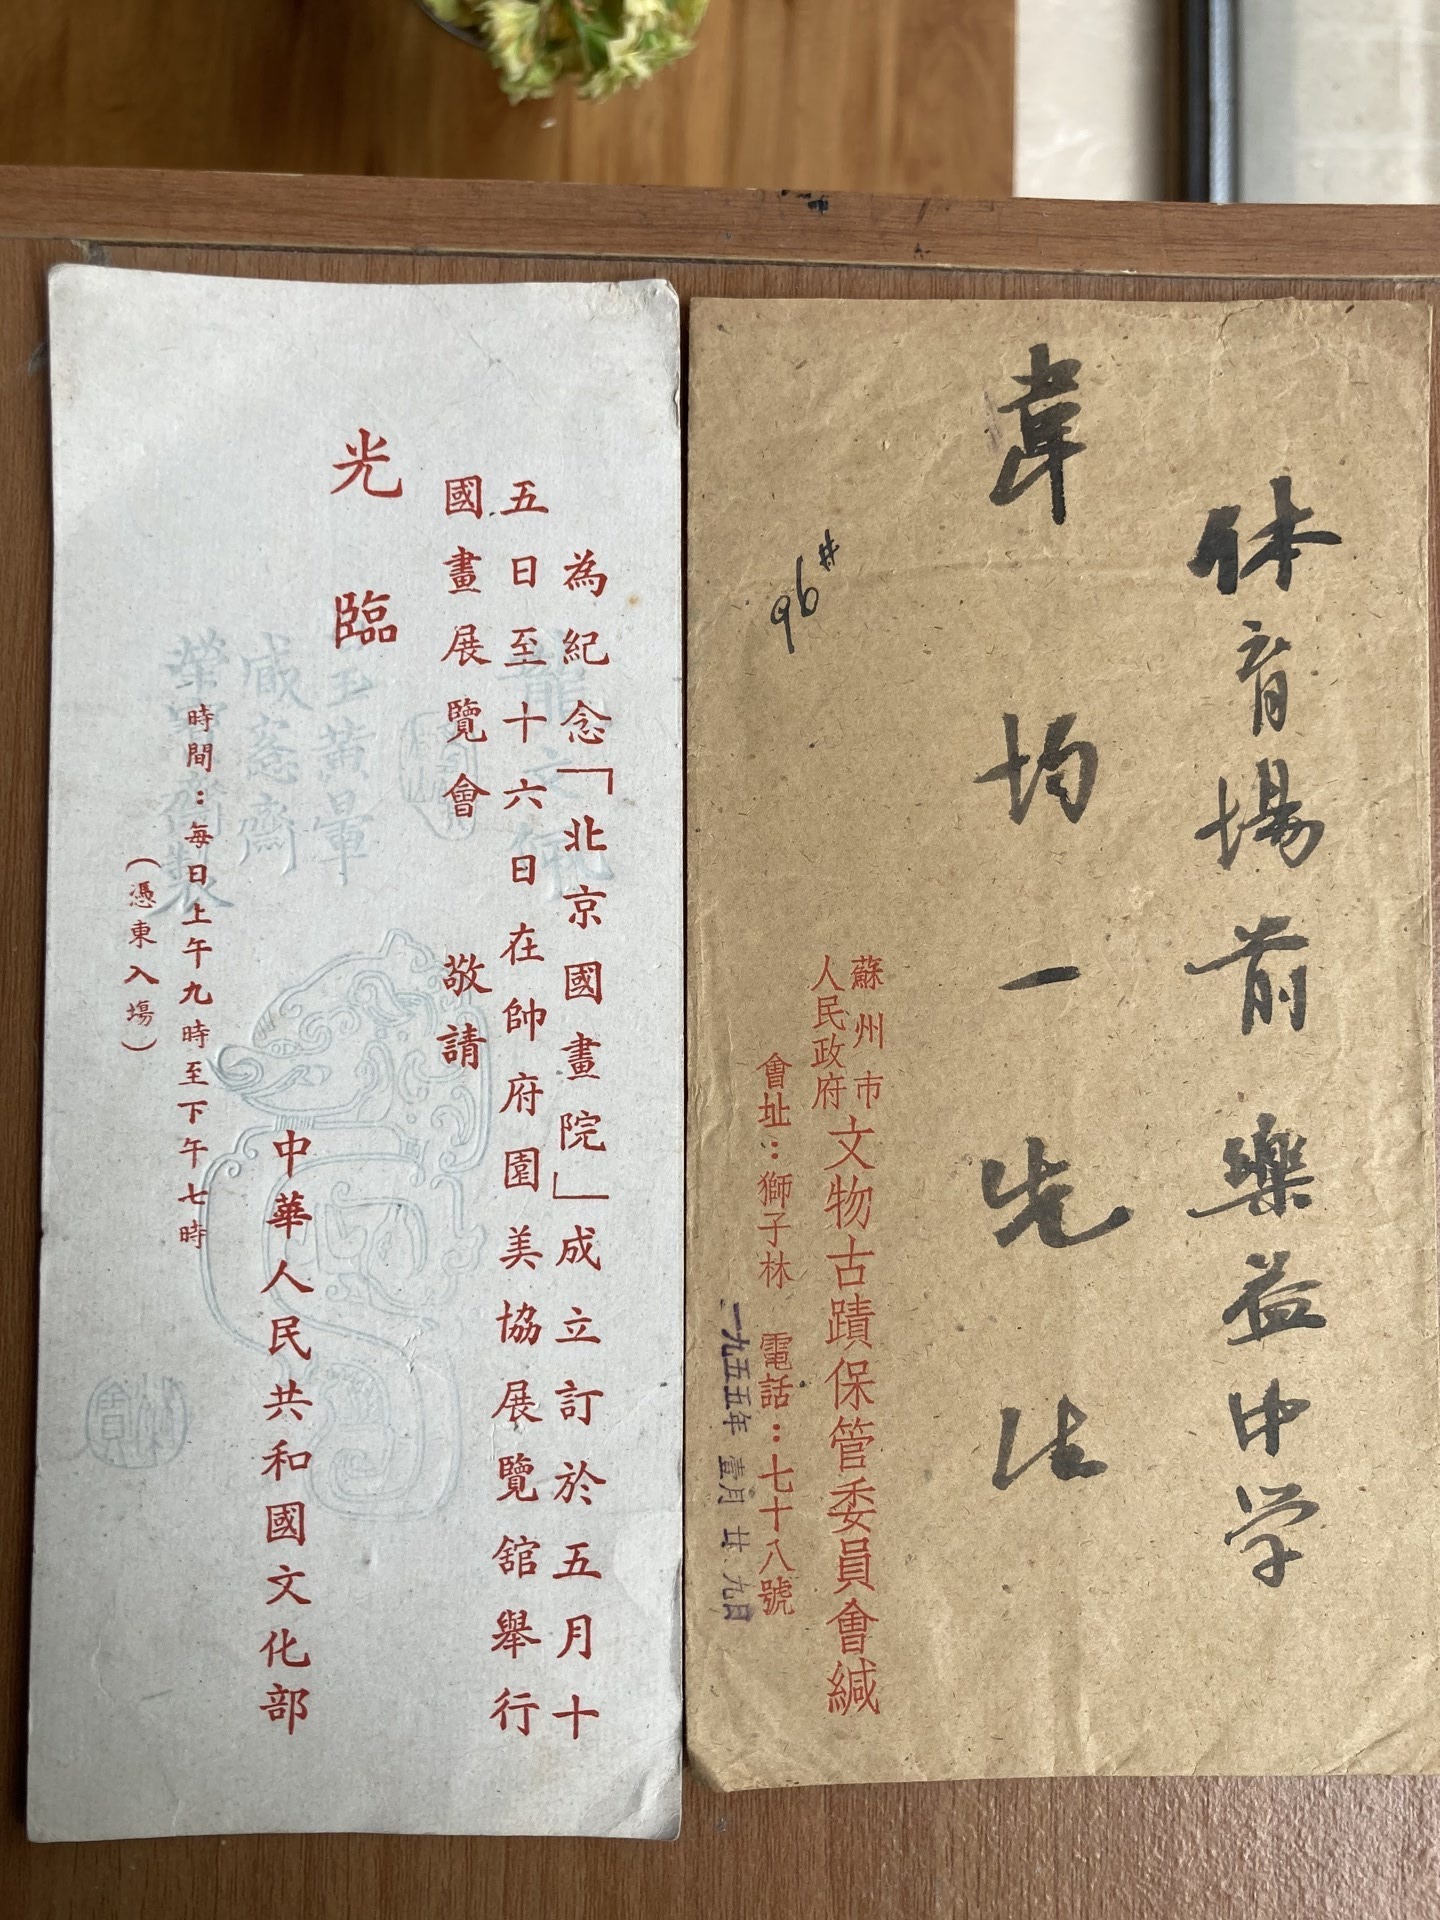 為紀念「北京國畫院」成立訂於五月十
五日至十六日在帥府園美協展覽舘舉行
國畫展覽會 敬請
光臨
中華人民共和國文化部
時間：每日上午九時至下午七時
（憑柬入場）
龍文佩
黃暈
咸齋
榮寶齋製
体育場前樂益中学
韋均一先生
96#
蘇州市
人民政府
文物古蹟保管委員會緘
會址：獅子林 電話：七十八號
一九五五年 壹月 廿九日